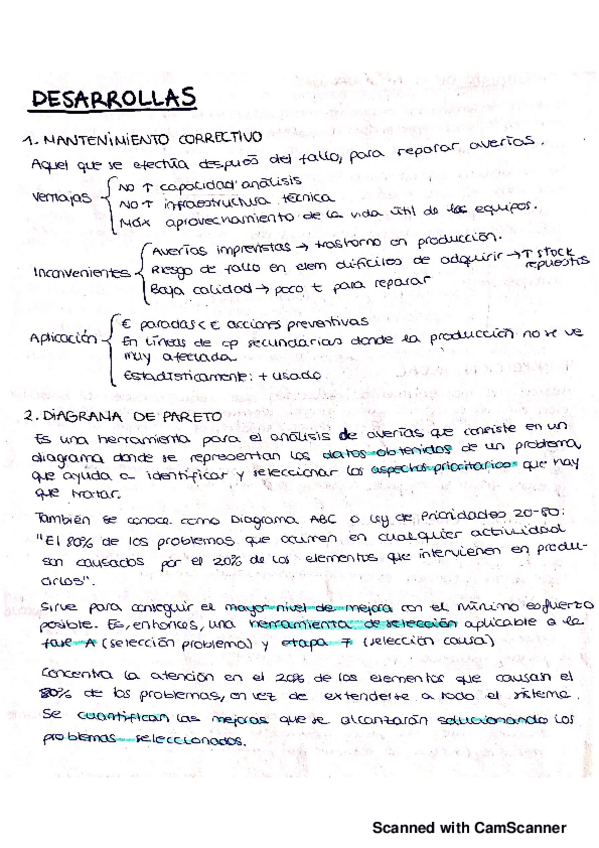 DESARROLLAS
1. MANTENIMIENTO CORRECTIVO
Aquel que se efectúa después del fallo, para reparar averías.
Ventajas
No ↑ capacidad análisis
No ↑ infraestructura técnica
Máx aprovechamiento de la vida útil de los equipos.
Inconvenientes
Averías imprevistas → trastorno en producción.
Riesgo de fallo en elem difíciles de adquirir → ↑ stock
repuestos
Baja calidad → poco t para reparar
Aplicación
€ paradas < € acciones preventivas
En líneas de cp secundarias donde la producción no se ve
muy afectada
Estadísticamente: + usado
2. DIAGRAMA DE PARETO
Es una herramienta para el análisis de averías que consiste en un
diagrama donde se representan los datos obtenidos de un problema,
que ayuda a identificar y seleccionar los aspectos prioritarios que hay
que tratar.
También se conoce como Diagrama ABC o Ley de Prioridades 20-80:
"El 80% de los problemas que ocurren en cualquier actividad
son causados por el 20% de los elementos que intervienen en produ-
cirlos".
Sirve para conseguir el mayor nivel de mejora con el mínimo esfuerzo
posible. Es, entonces, una herramienta de selección aplicable a la
fase A (selección problema) y etapa 7 (selección causa)
Concentra la atención en el 20% de los elementos que causan el
80% de los problemas, en vez de extenderse a todo el sistema.
Se cuantifican las mejoras que se alcanzarán solucionando los
problemas seleccionados.
Scanned with CamScanner